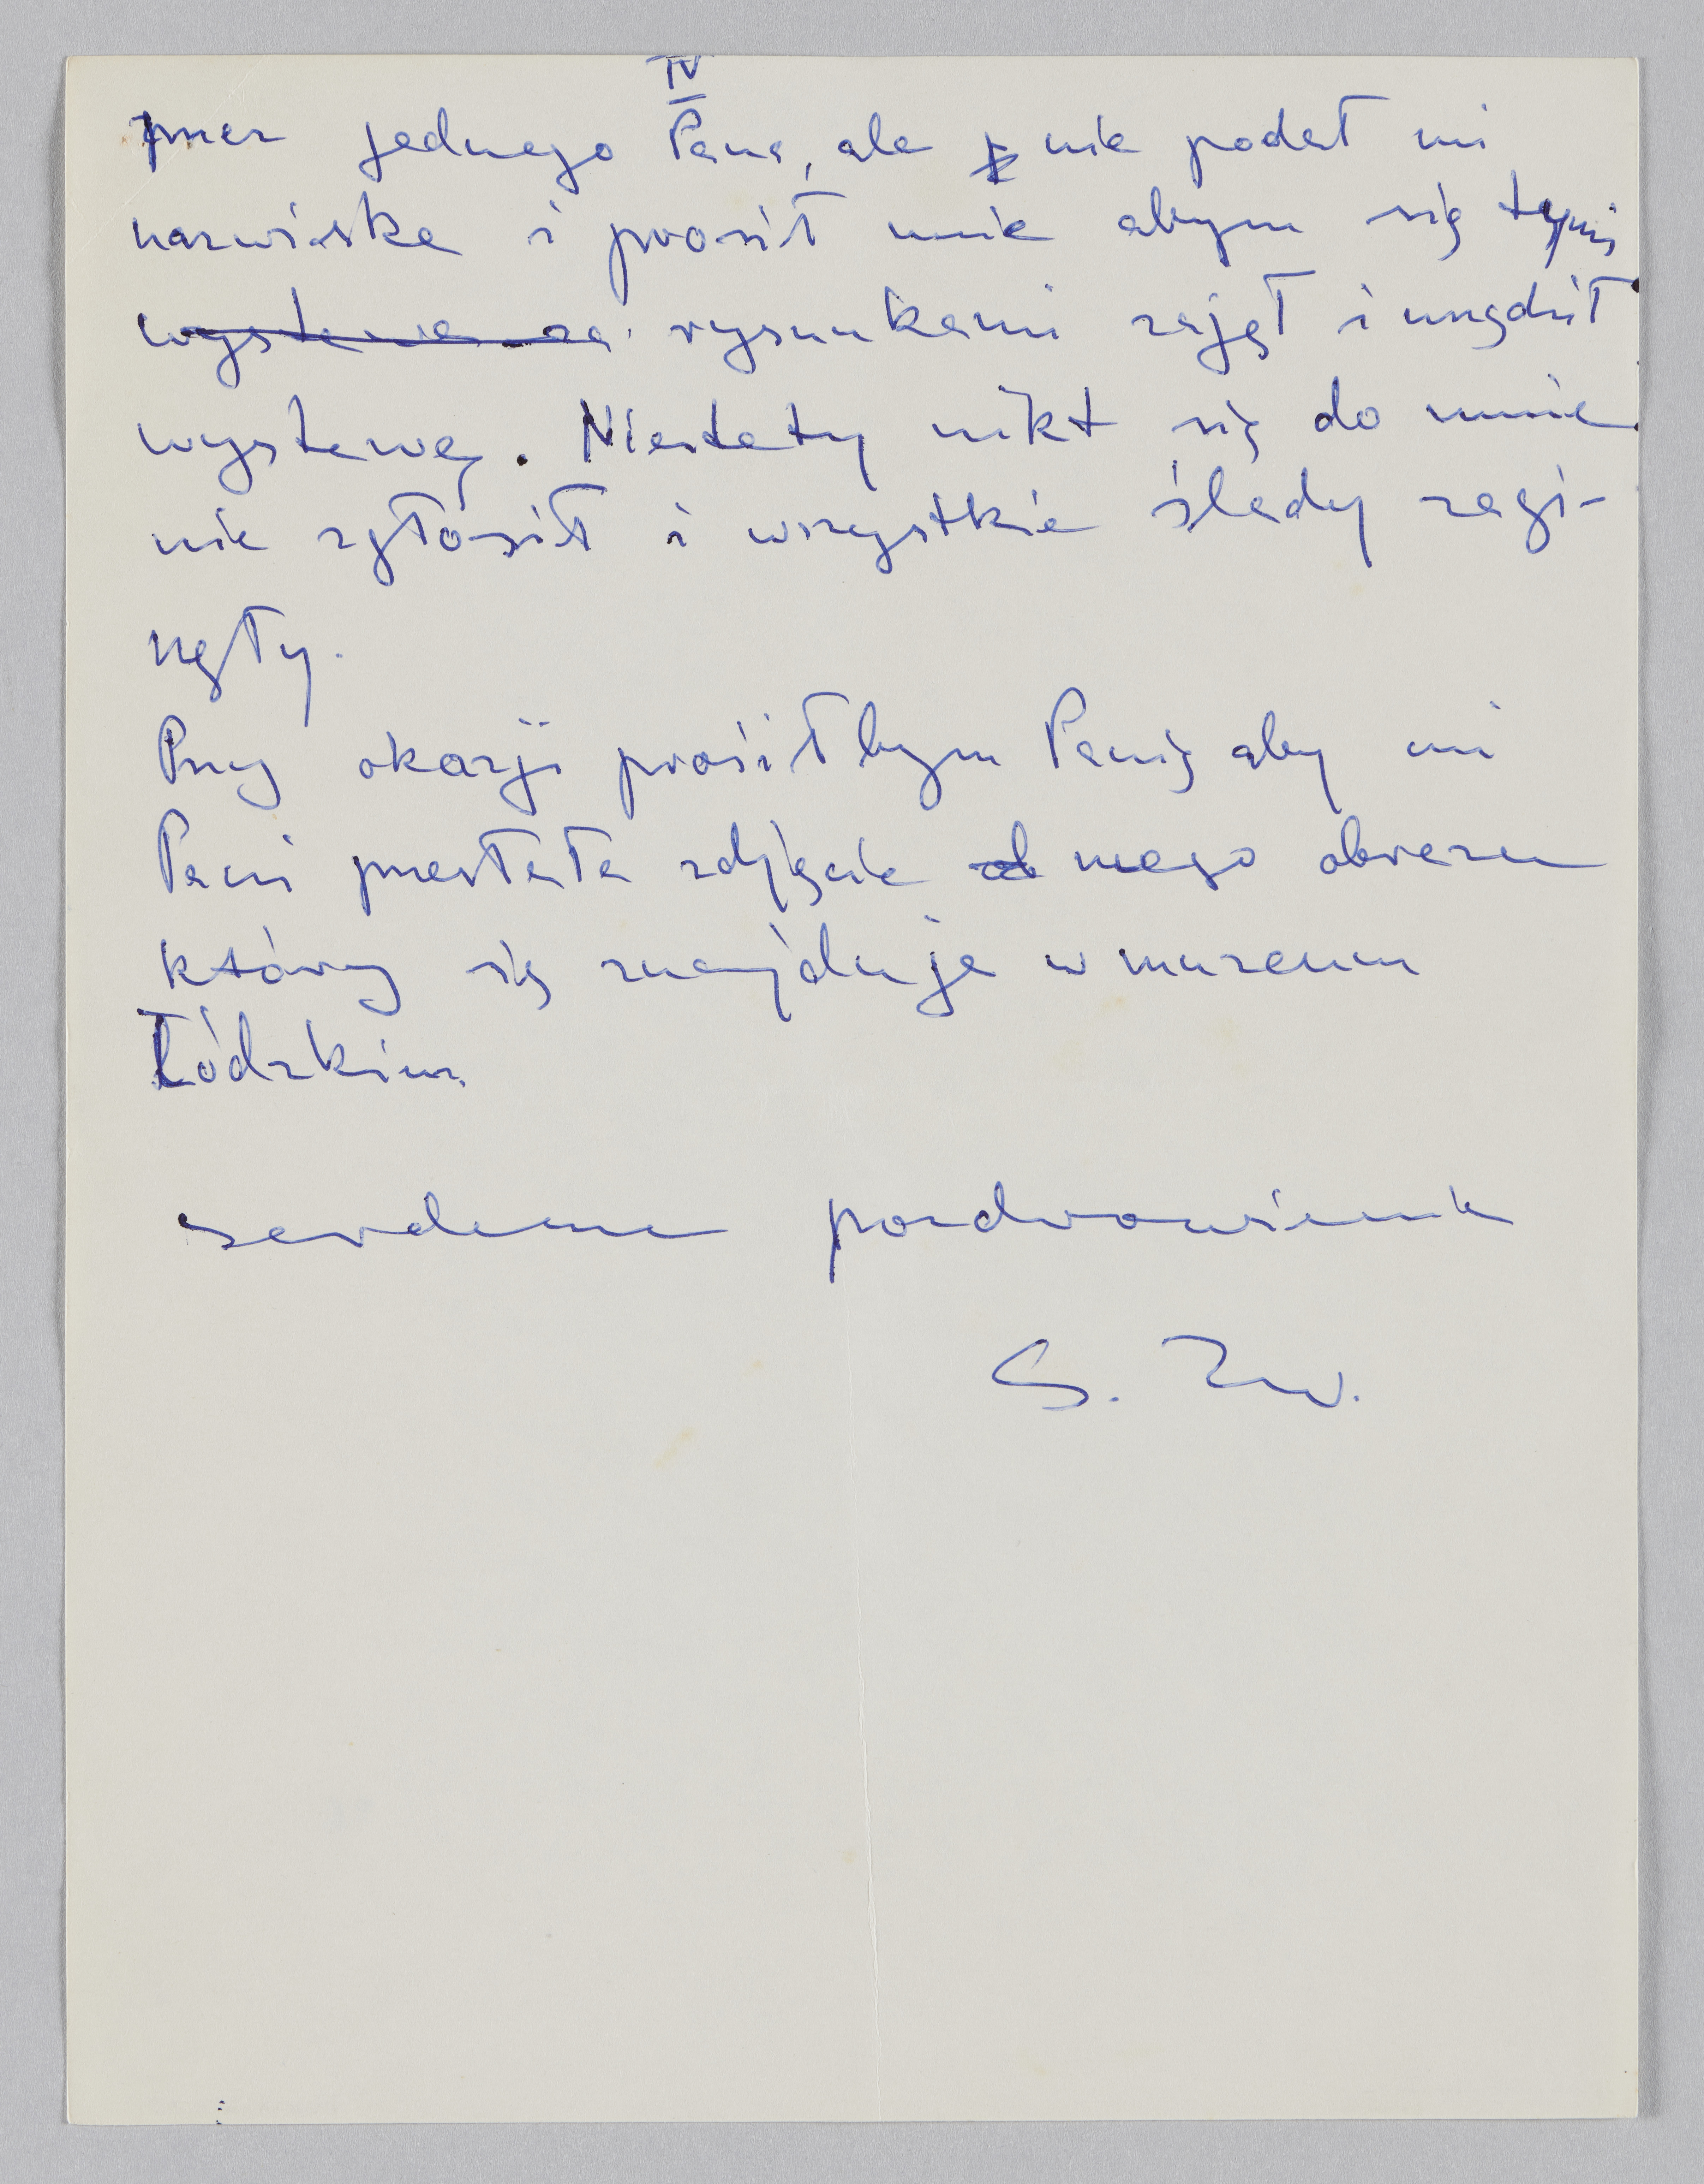 IV
przez jednego Pana, ale nie podał mi
nazwiska i prosił mnie abym się tymi
wystawa za rysunkami zajął i urządził
wystawę. Niestety nikt się do mnie
nie zgłosił i wszystkie ślady zagi-
nęły.
Przy okazji prosiłbym Panią aby mi
Pani przesłała zdjęcie od mego obrazu
który się znajduje w muzeum
Łódzkim
serdeczne pozdrowienia
S. Zw.